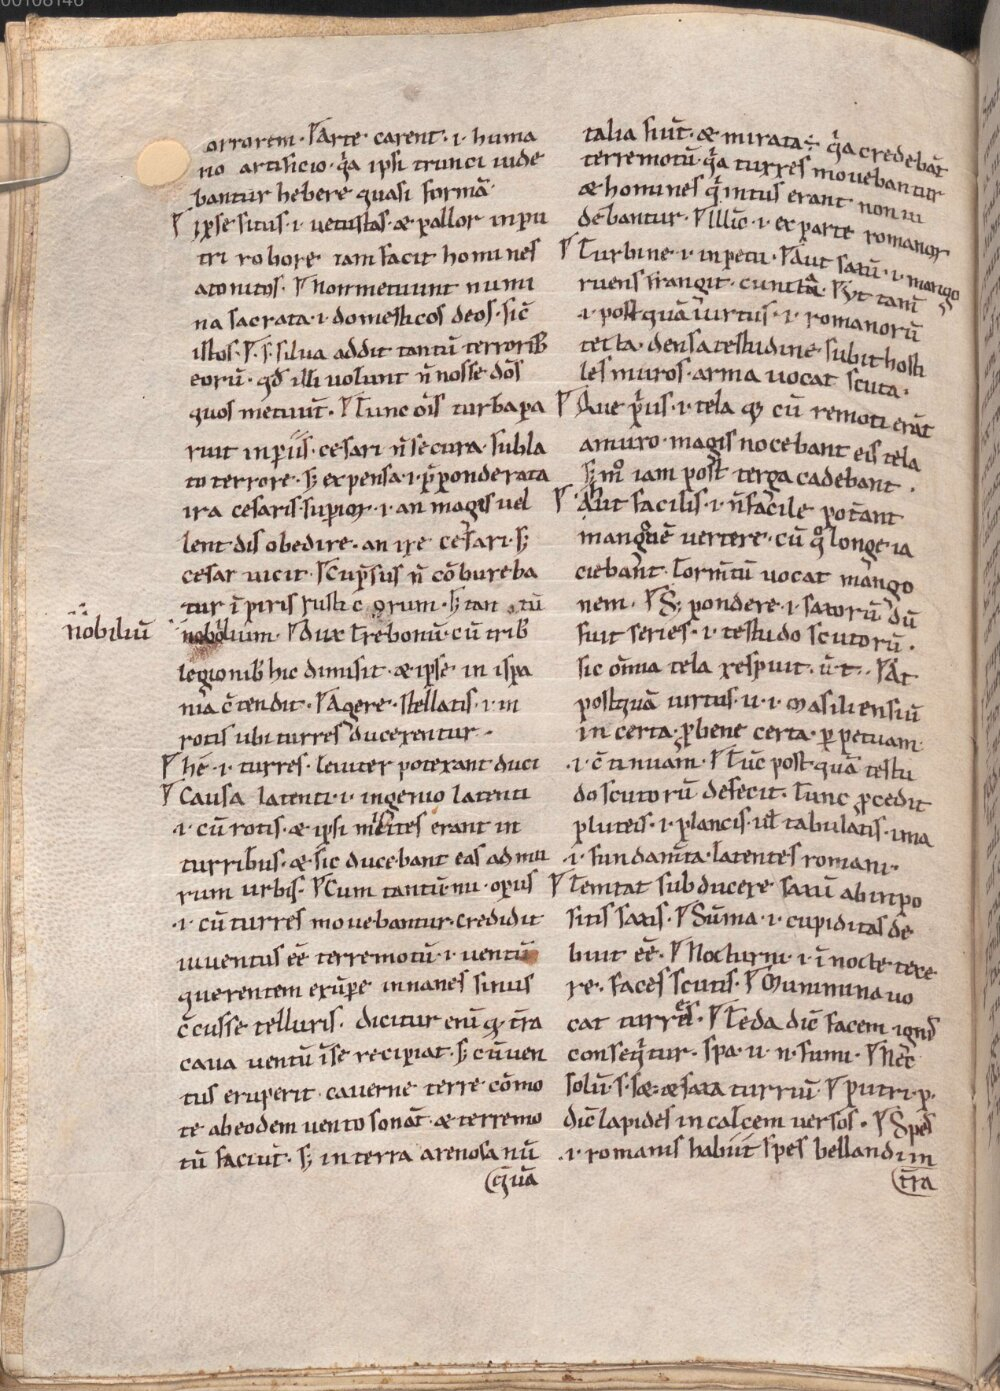 00108146
orrorem· Arte carent· ı· huma
no artificio· q̃a ipsi trunci uide
bantur hebere quasi formã·
ipse situs· ı· uetustas· æ pallor inpu
tri robore iam facit homines
atonitos· Non metuunt numi
na sacrata· ı· domesticos deos· sic̄
istos· S· silua addit tantū terrorib
eorū· qđ illi uolunt n̄ nosse dōs
quos metuūt· Tunc oīs turba pa
ruit inpiis· cesari n̄ secura· subla
to terrore· sꝫ expensa· ı· p̄ponderata
ira cesaris· supior· ı· an magis uel
lent dis obedire· an ire cesari· sꝫ
cesar uicit· Cup̄sus n̄ cōbureba
tur ī piris rusticorum· sꝫ tan tū
n̄obiliū
nobilium· Dux Trebonū· cū trib
legionib hic dimisit· æ ipse in ispa
nia c̄tendit· Agere· stellatis· ı· in
rotis ubi turres ducerentur·
hē· ı· turres· leuiter poterant duci
Causa latenti· ı· ingenio latenti
ı· cū rotis· æ ipsi milites erant in
turribus· æ sic ducebant eas ad mu
rum urbis· Cum tantū nu· opus
·ı· cū turres mouebantur· credidit
iuuentus eē terremotū· ı· uentū
querentem erūpe innanes sinus
c̄cusse telluris· dicitur enī qꝫ t̄ra
caua uentū ī se recipiat· sꝫ cū uen
tus eruperit cauerne terre cōmo
te ab eodem uento sonāt· æ terremo
tū faciūt· sꝫ in terra arenosa nū
q̄uā
talia fiūt· æ mirata÷ q̃a credebāt
terremotū· q̃a turres mouebantur
æ homines q̃ intus erant non ui
debantur· Illic̄· ı· ex parte romanoꝝ
Turbine· ı· inpetu· Aut saxū· ı· mango
ruens frangit· cuncta· Vt tam̄
·ı· postquā uirtus· ı· romanorū
tecta· densa testudine· subit hosti
les muros· arma uocat scuta·
Que p̄us· ı· tela qꝫ cū remoti erāt
a muro· magis nocebant eis tela
sꝫ m̊ iam post terga cadebant·
Aut facilis· ı· n̄ facile poterant
mangonē uertere· cū q̊ longe ia
ciebant· Torm̄tū uocat mango
nem· Sꝫ pondere· ı· saxorū dū
fuit series· ı· testudo scutorū·
sic om̄ia tela respuit· ū t·· At
postquā uirtus· u· ı· masiliensiū
in certa· ꝓ bene certa· ꝑpetuam
·ı· c̄tinuam· Tūc postquā testu
do scutorū defecit· Tunc ꝓcedit
pluteis· ı· plancis· ul tabulatis· ima
·ı· fundam̄ta· latentes romani·
Temtat subducere saxū ab inpo
sitis saxis· Sūma· ı· cupiditas de
buit eē· Nocturni· ı· ī nocte texe
re· faces scutis· Munimina uo
cat turres· Teda dic̄ facem ignē
conseq̄tur· spa· u· n· fumi· Nec
solū· s· sæ· æ saxa turriū· putri· p·
dic̄ lapides in calcem uersos· Spes
·ı· romanis habuit spes bellandi in
t̄ra